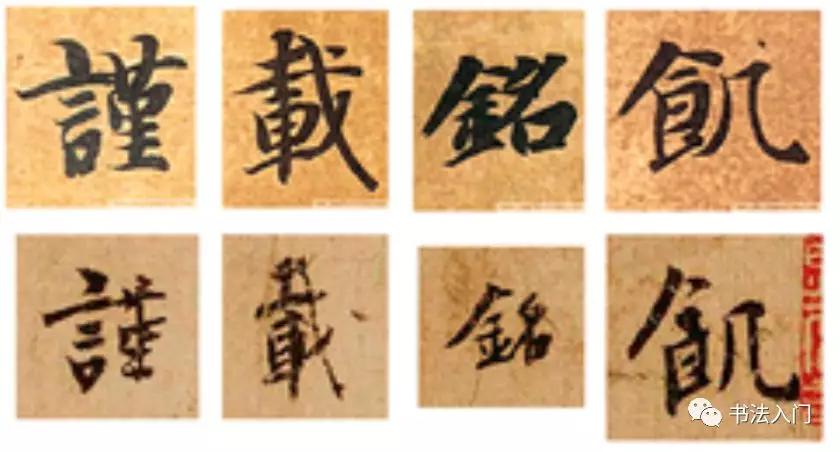 謹載銘飢
謹載銘飢
书法入门